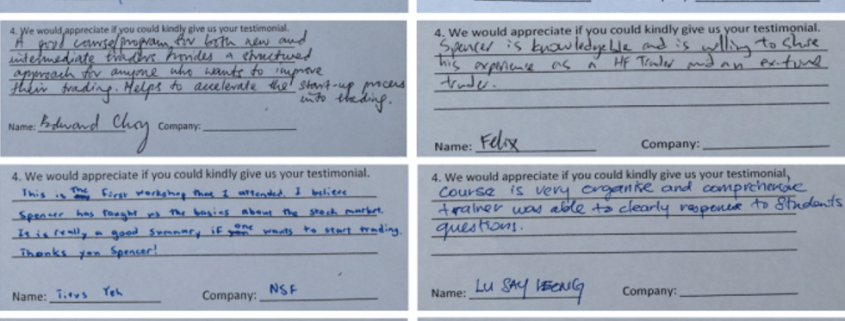 4. We would appreciate if you could kindly give us your testimonial.
A good course/program for both new and
intermediate traders. Provides a structured
approach for anyone who wants to improve
their trading. Helps to accelerate the start-up process
into trading.
Name: Edward Choy Company:
4. We would appreciate if you could kindly give us your testimonial.
Spencer is knowledgeble and is willing to share
his experience as a HF Trader and an ex-fund
trader.
Name: Felix Company:
4. We would appreciate if you could kindly give us your testimonial.
This is the first workshop that I attended. I believe
Spencer has taught us the basics about the stock market.
It is really a good summary if one wants to start trading.
Thanks you Spencer!
Name: Titus Yeh Company: NSF
4. We would appreciate if you could kindly give us your testimonial.
Course is very organise and comprehensive
trainer was able to clearly response to students
questions.
Name: LU SAY Company: